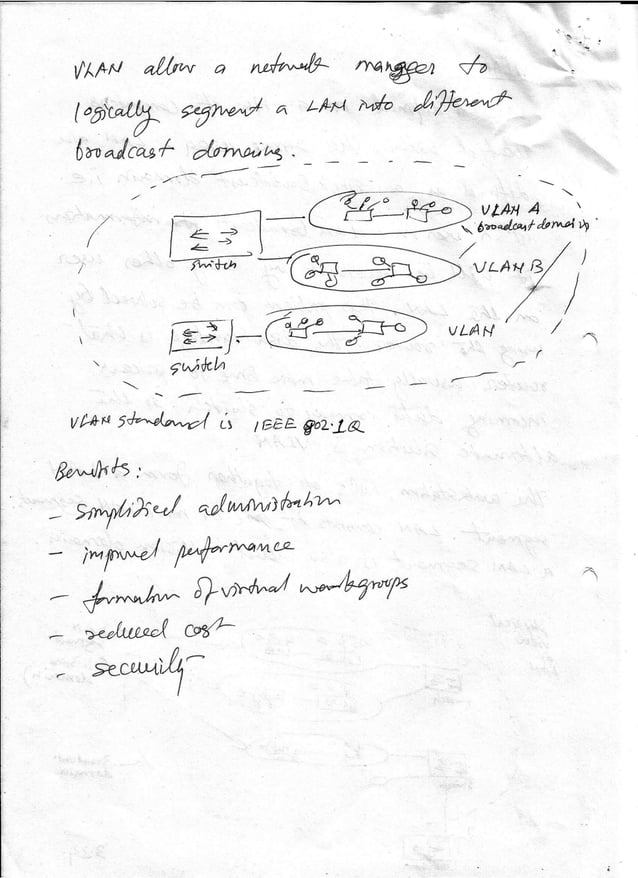 VLAN allow a network manager to
logically segment a LAN into different
broadcast domains.
VLAN A
broadcast domain
switch
VLAN B
VLAN
switch
VLAN standard is IEEE 802.1Q
Benefits:
- simplified administration
- improved performance
- formation of virtual workgroups
- reduced cost
- security